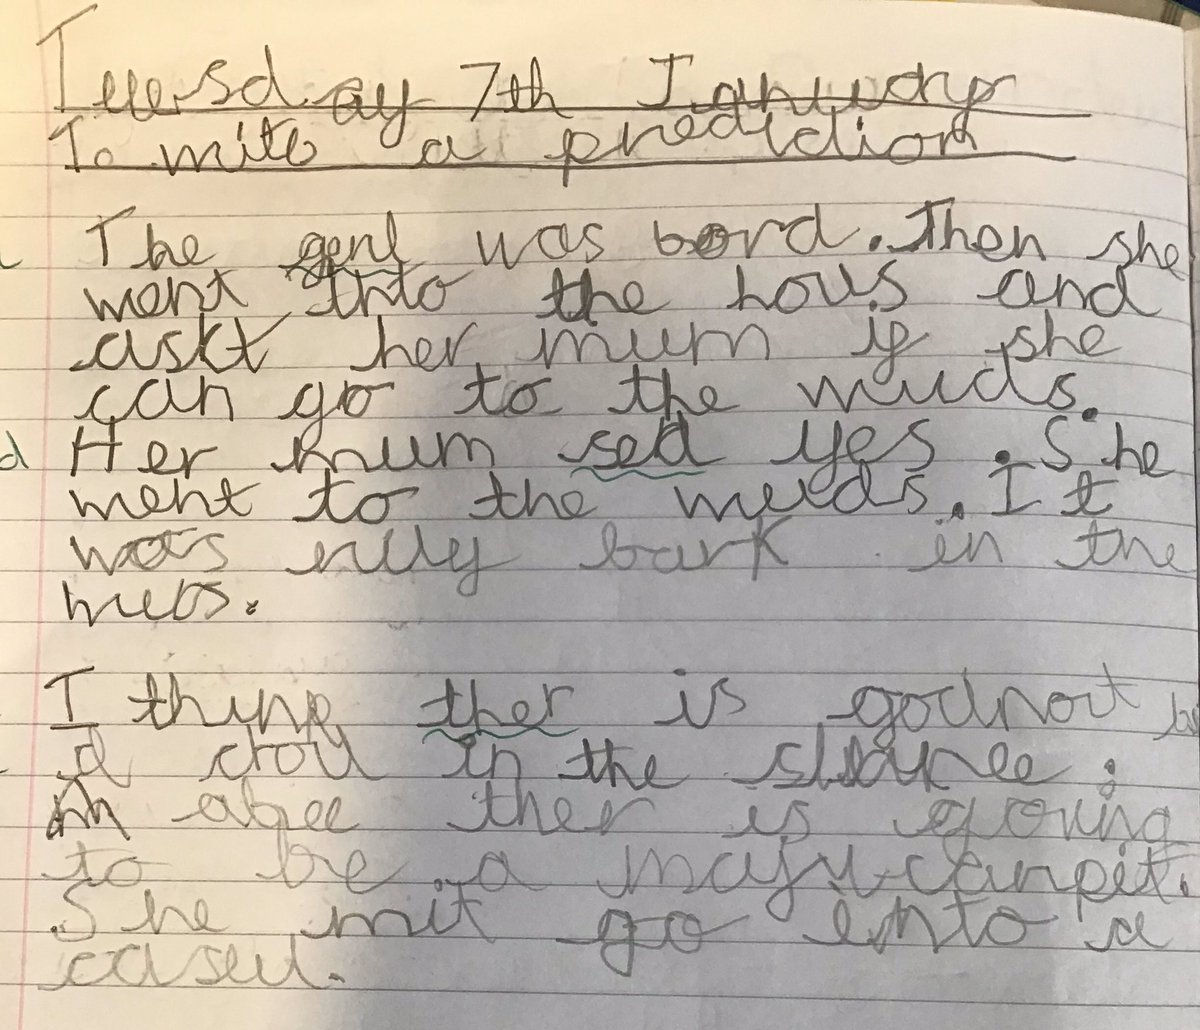 Tuesday 7th January
To write a prediction
The gerl was bord. Then she
went into the hous and
askt her mum if she
can go to the wuds.
Her mum sed yes. She
went to the wuds. It
was rily bark in the
wuds.
I thinc ther is
a doll in the
ther is gowing
to be a majicanpit.
She mit go into a
casel.